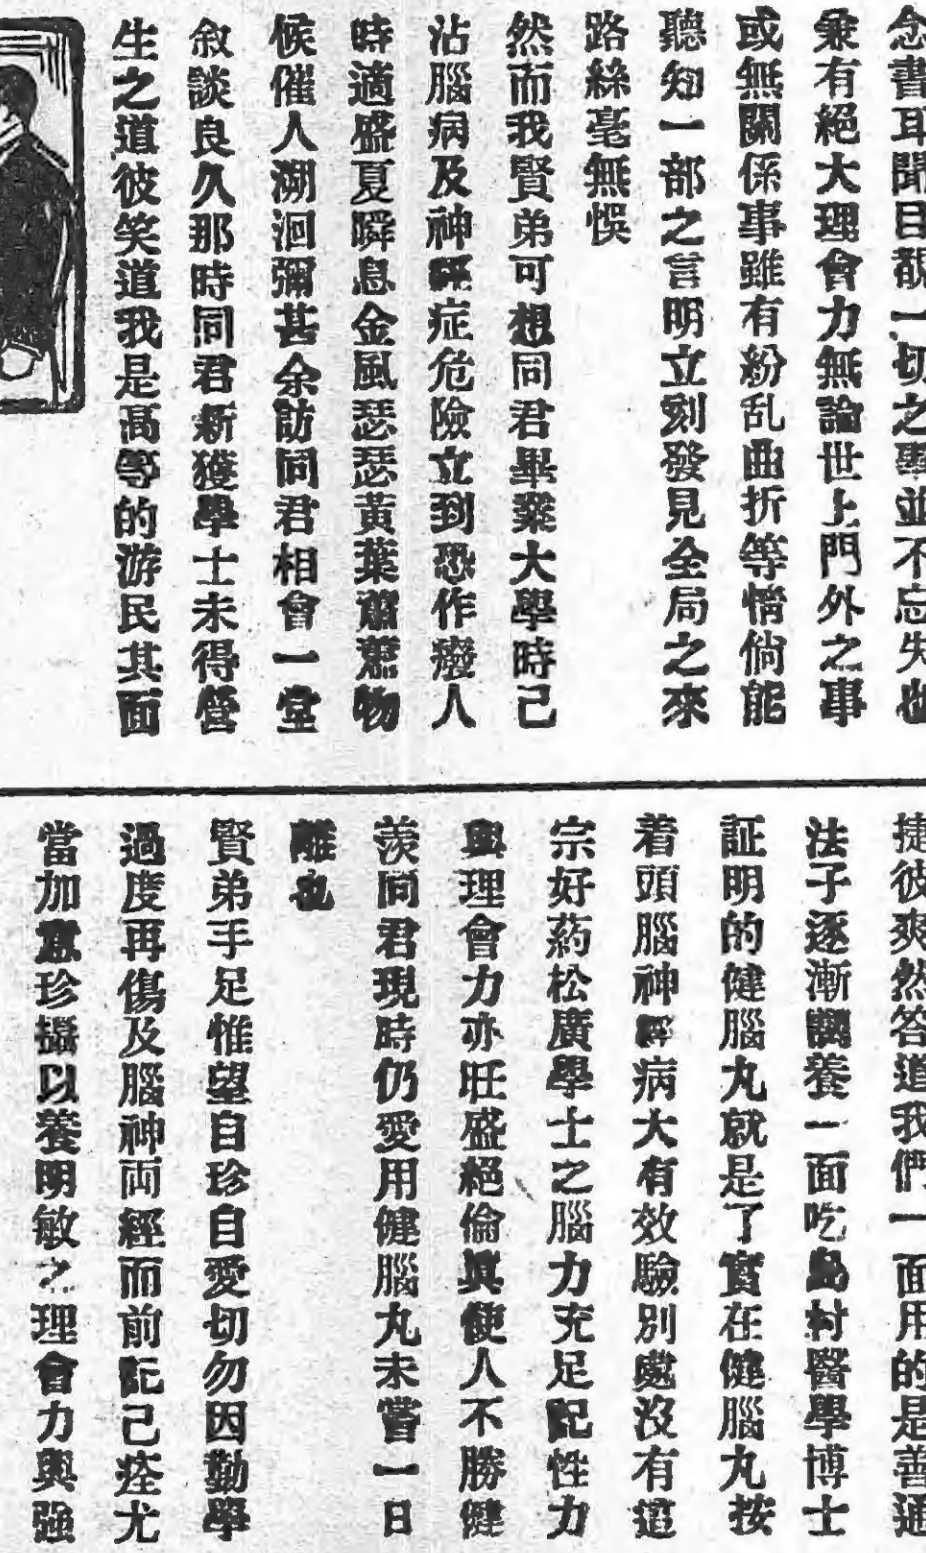 念書耳聞目覩一切之事並不忘失也
兼有絕大理會力無論世上門外之事
或無關係事雖有紛乱曲折等情倘能
聽知一部之言明立刻發見全局之來
路絲毫無悞
然而我賢弟可想同君畢業大學時己
沾腦病及神經症危險立到恐作癈人
時適盛夏瞬息金風瑟瑟黃葉蕭蕭物
候催人溯洄彌甚余訪同君相會一堂
敘談良久那時同君新獲學士未得營
生之道彼笑道我是高等的游民其面
捷彼爽然答道我們一面用的是善通
法子逐漸調養一面吃島村醫學博士
証明的健腦丸就是了實在健腦丸按
着頭腦神經病大有效驗別處沒有這
宗好葯松廣學士之腦力充足記性力
與理會力亦旺盛絕倫眞使人不勝健
羨同君現時仍愛用健腦丸未嘗一日
離也
賢弟手足惟望自珍自愛切勿因勤學
過度再傷及腦神両經而前記己痊尤
當加意珍攝以養明敏之理會力與強